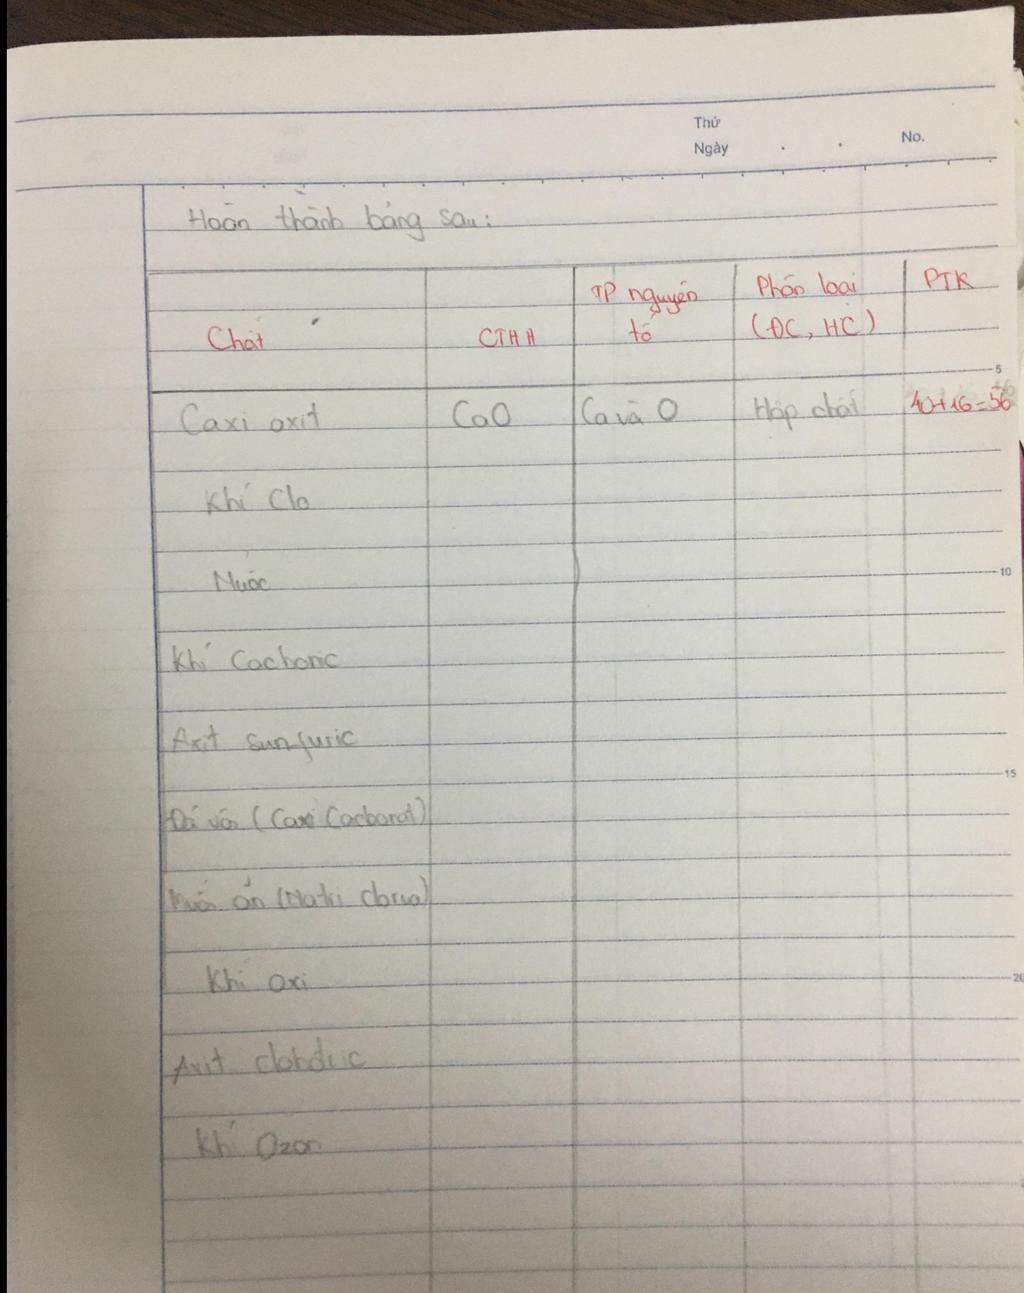 Thứ
Ngày . . No.
Hoàn thành bảng sau:
Chất CTHH TP nguyên tố Phân loại (ĐC, HC) PTK
5
Caxi oxit CaO Ca và O Hợp chất 40+16=56
Khí Clo
Nước
10
Khí Cacbonic
Axit sunfuric
15
Đá vôi (Caxi Cacbonat)
Muối ăn (Natri clorua)
Khí oxi
20
Axit clohđric
Khí Ozon